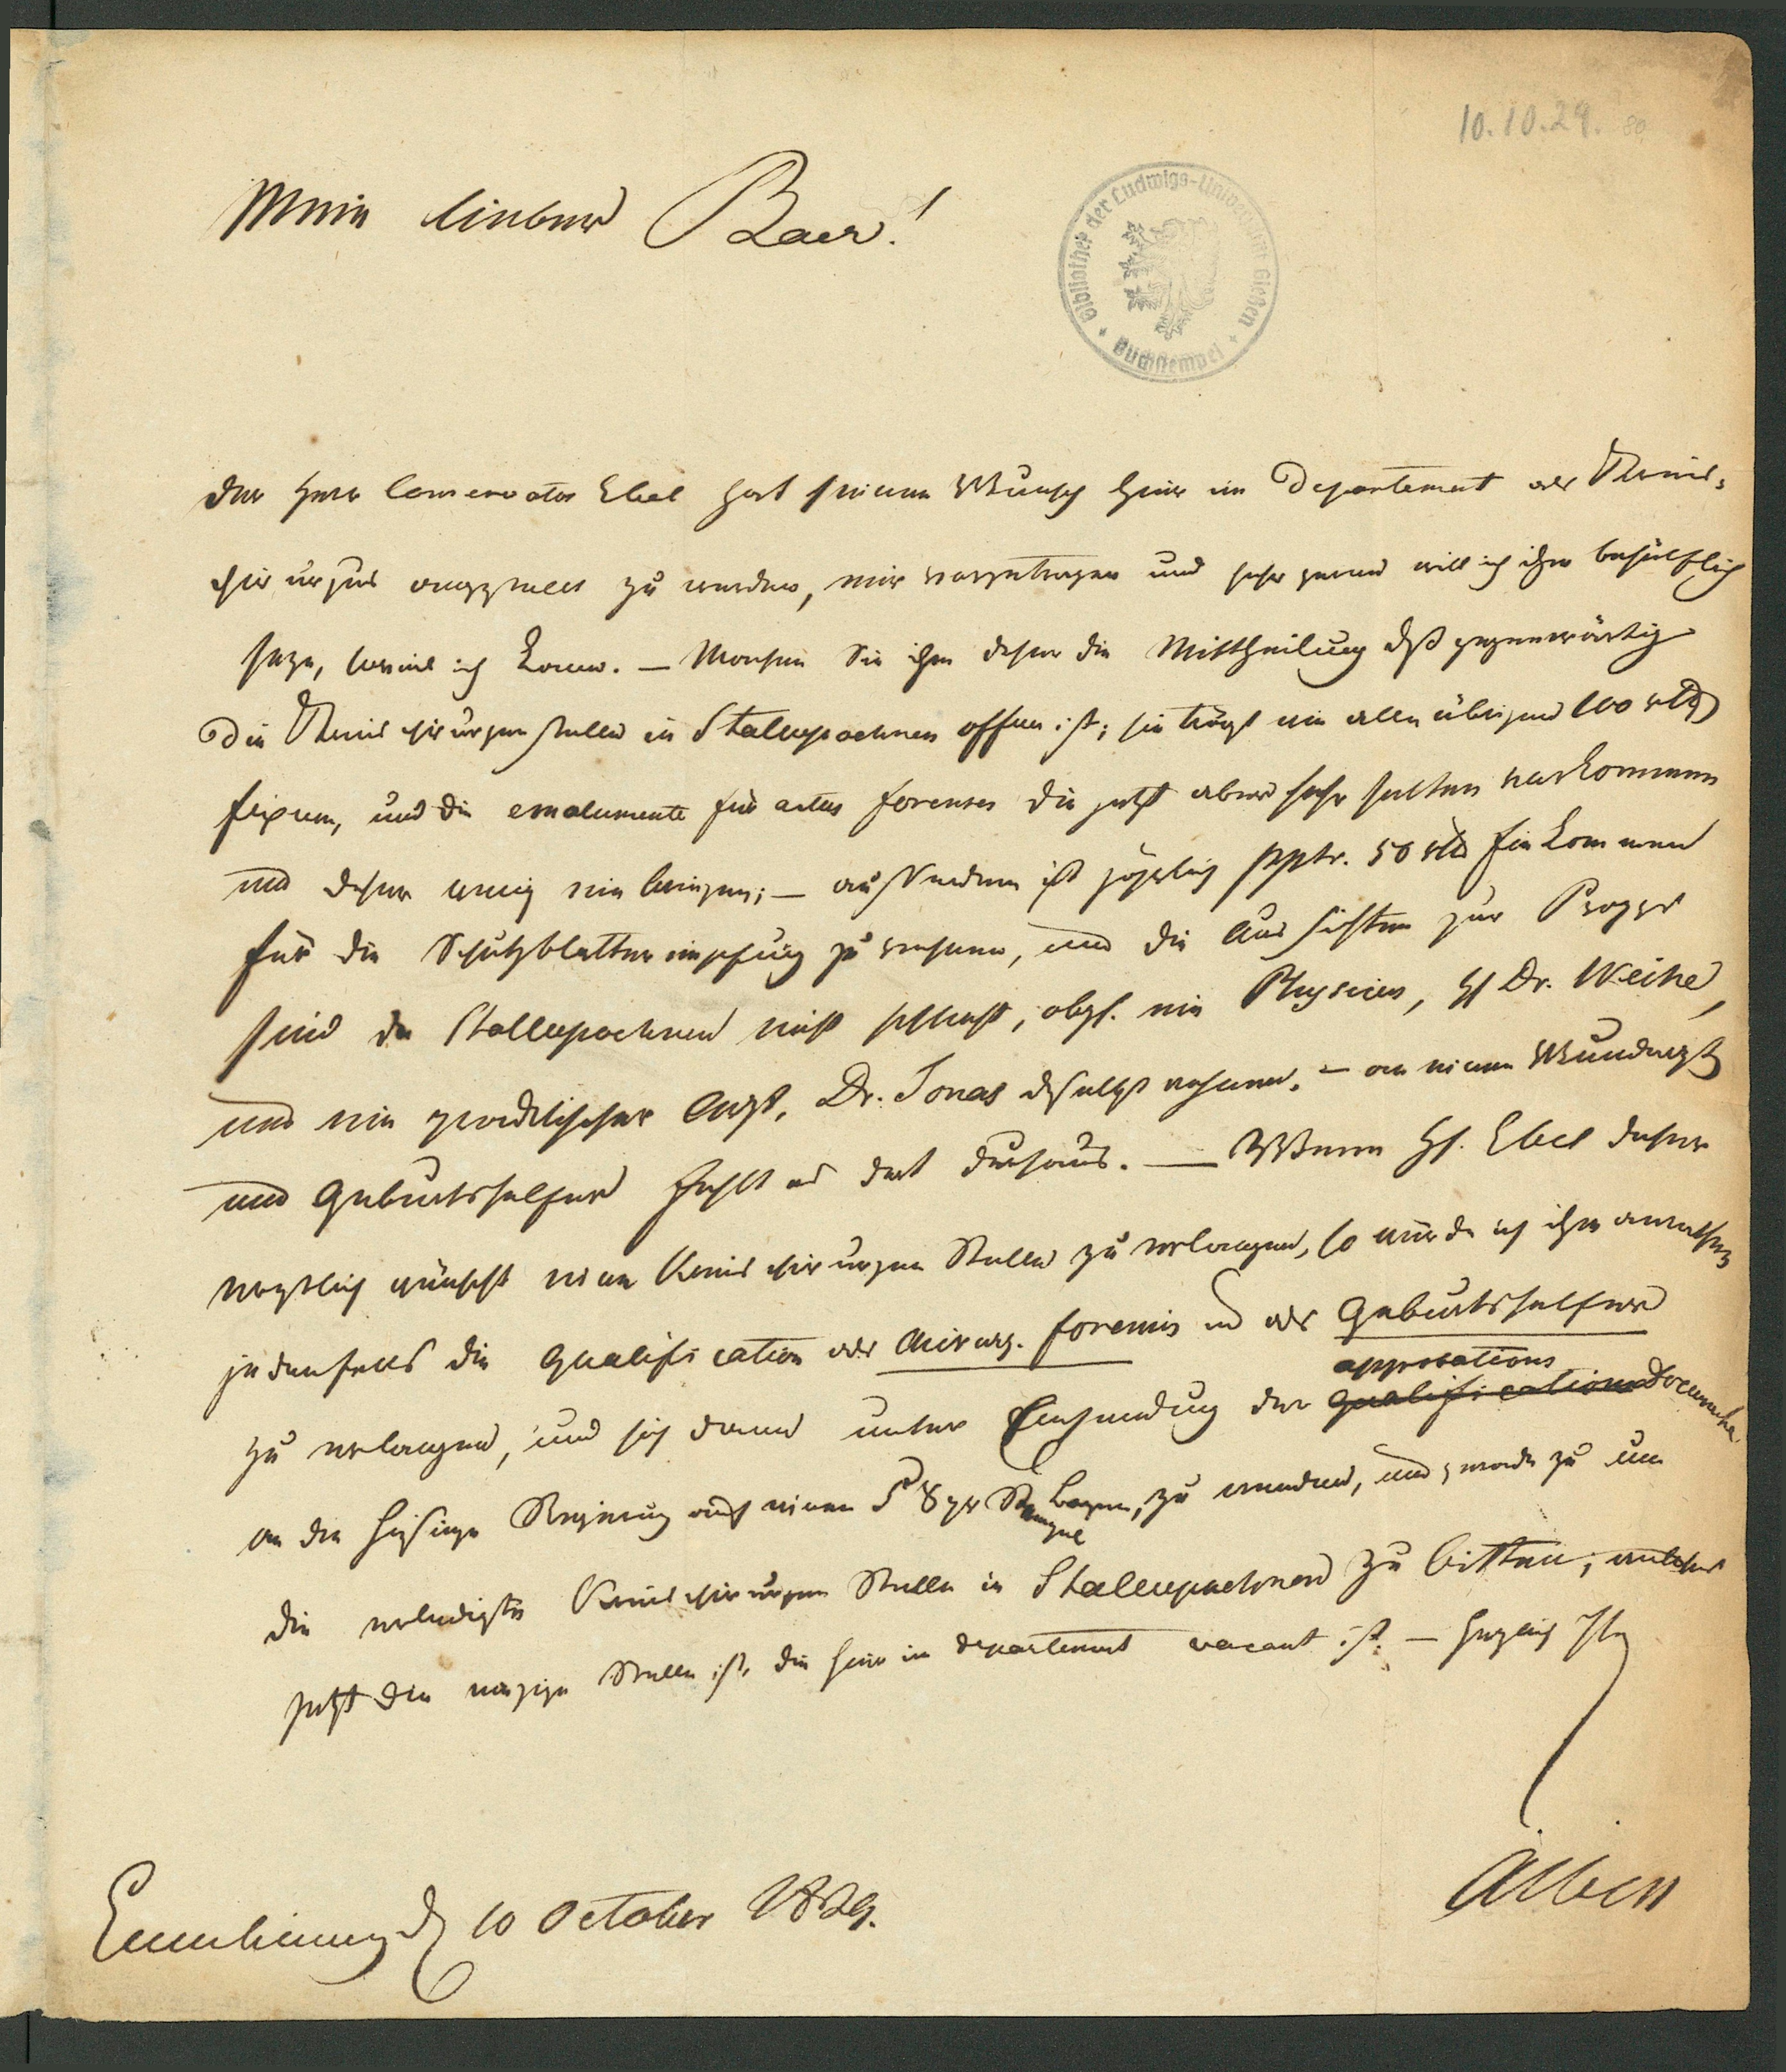 10.10.29.
Mein lieber Baer!
Bibliothek der Ludwigs-Universität Gießen
Buchstempel
Der Herr Conservator Ebel hat seinen Wunsch hier im Departement als Kreis-
chirurgus angestellt zu werden, mir vorgetragen und sehr gerne will ich ihm behülflich
seyn, wenn ich kann. — Machen Sie ihm daher die Mittheilung dß gegenwärtig
die Kreischirurgen Stelle in Stallupoehnen offen ist; sie trägt wie alle übrigen 100 rth
fixum, und die emolumente für actus forenses die jetzt aber sehr selten vorkommen
und daher wenig einbringen; — außerdem ist jährlich pptr. 50 rth Einkommen
für die Schutzblatternimpfung zu rechnen, und die Aussichten zur Praxis
sind in Stallupoehnen nicht schlecht, obgl. ein Physicus, H Dr. Weihe,
und ein practischer Arzt, Dr. Jonas daselbst wohnen. — an einem Wundarzt
und Geburtshelfer fehlt es dort durchaus. — Wenn H. Ebel daher
ernstlich wünscht eine Kreischirurgen Stelle zu erlangen, so würde ich ihm anrathen
jedenfalls die Qualification als Chirurg. forensis und als Geburtshelfer
zu erlangen, und sich dann unter Einsendung der Qualifications
approbations
Documente
an die hiesige Regierung auf einem 8 gr Stempel
bogen, zu wenden, und gerade zu um
die erledigte Kreischirurgen Stelle in Stallupoehnen zu bitten, welches
jetzt die einzige Stelle ist, die hier im departement vacant ist. — Herzlich Ihr
Albers
Gumbinnen d 10 October 1829.